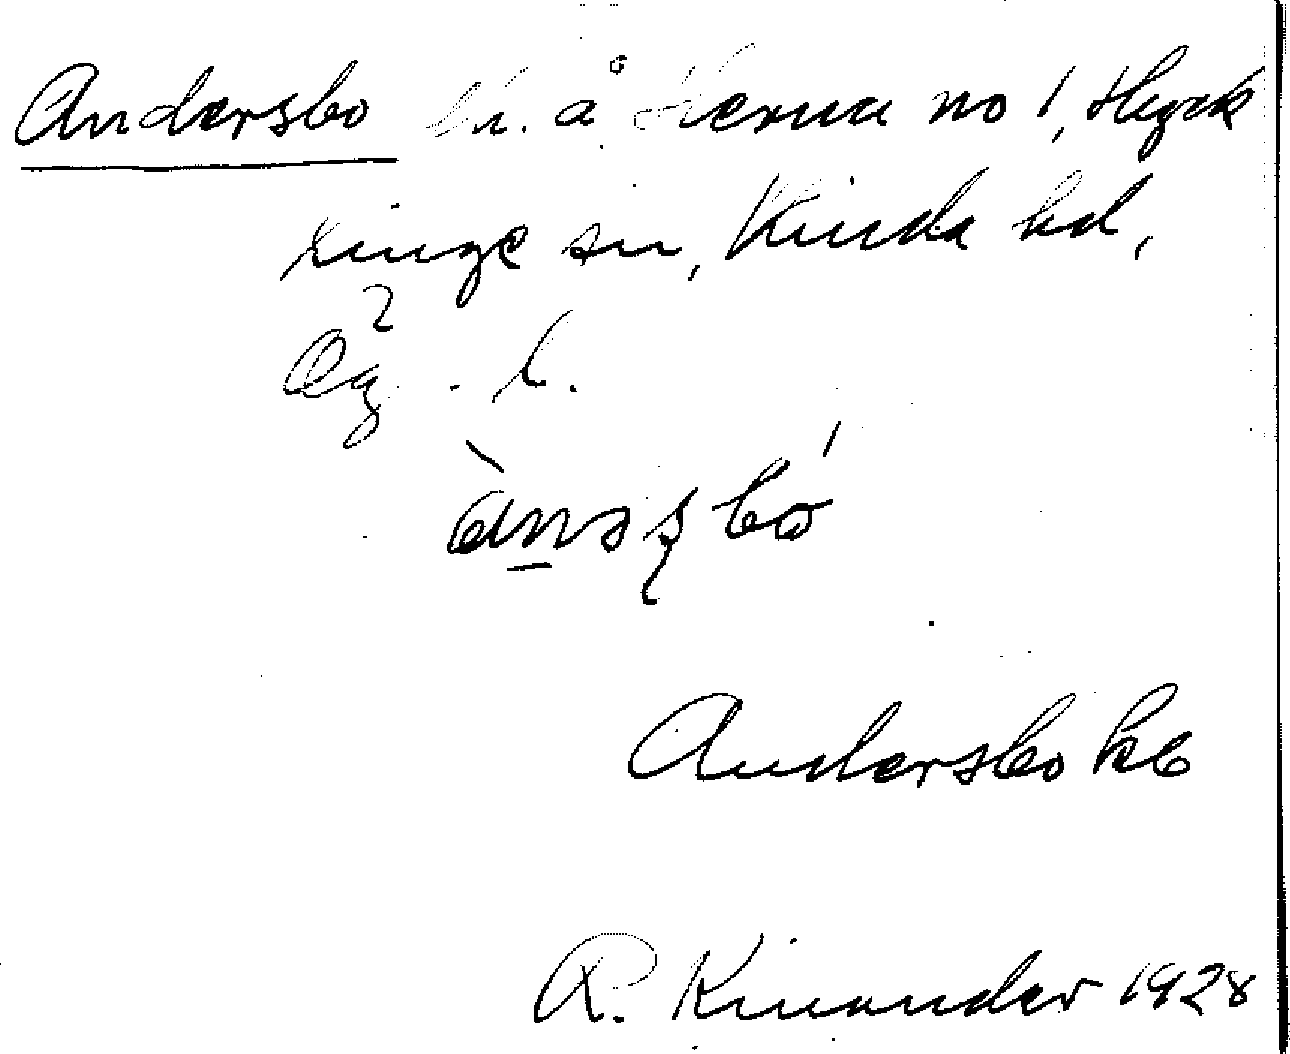 Andersbo lh. å Herna no 1, Hyck
linge sn, Kinda hd,
Ög. l.
ànsbó
Andersbo kb
R. Kinander 1928